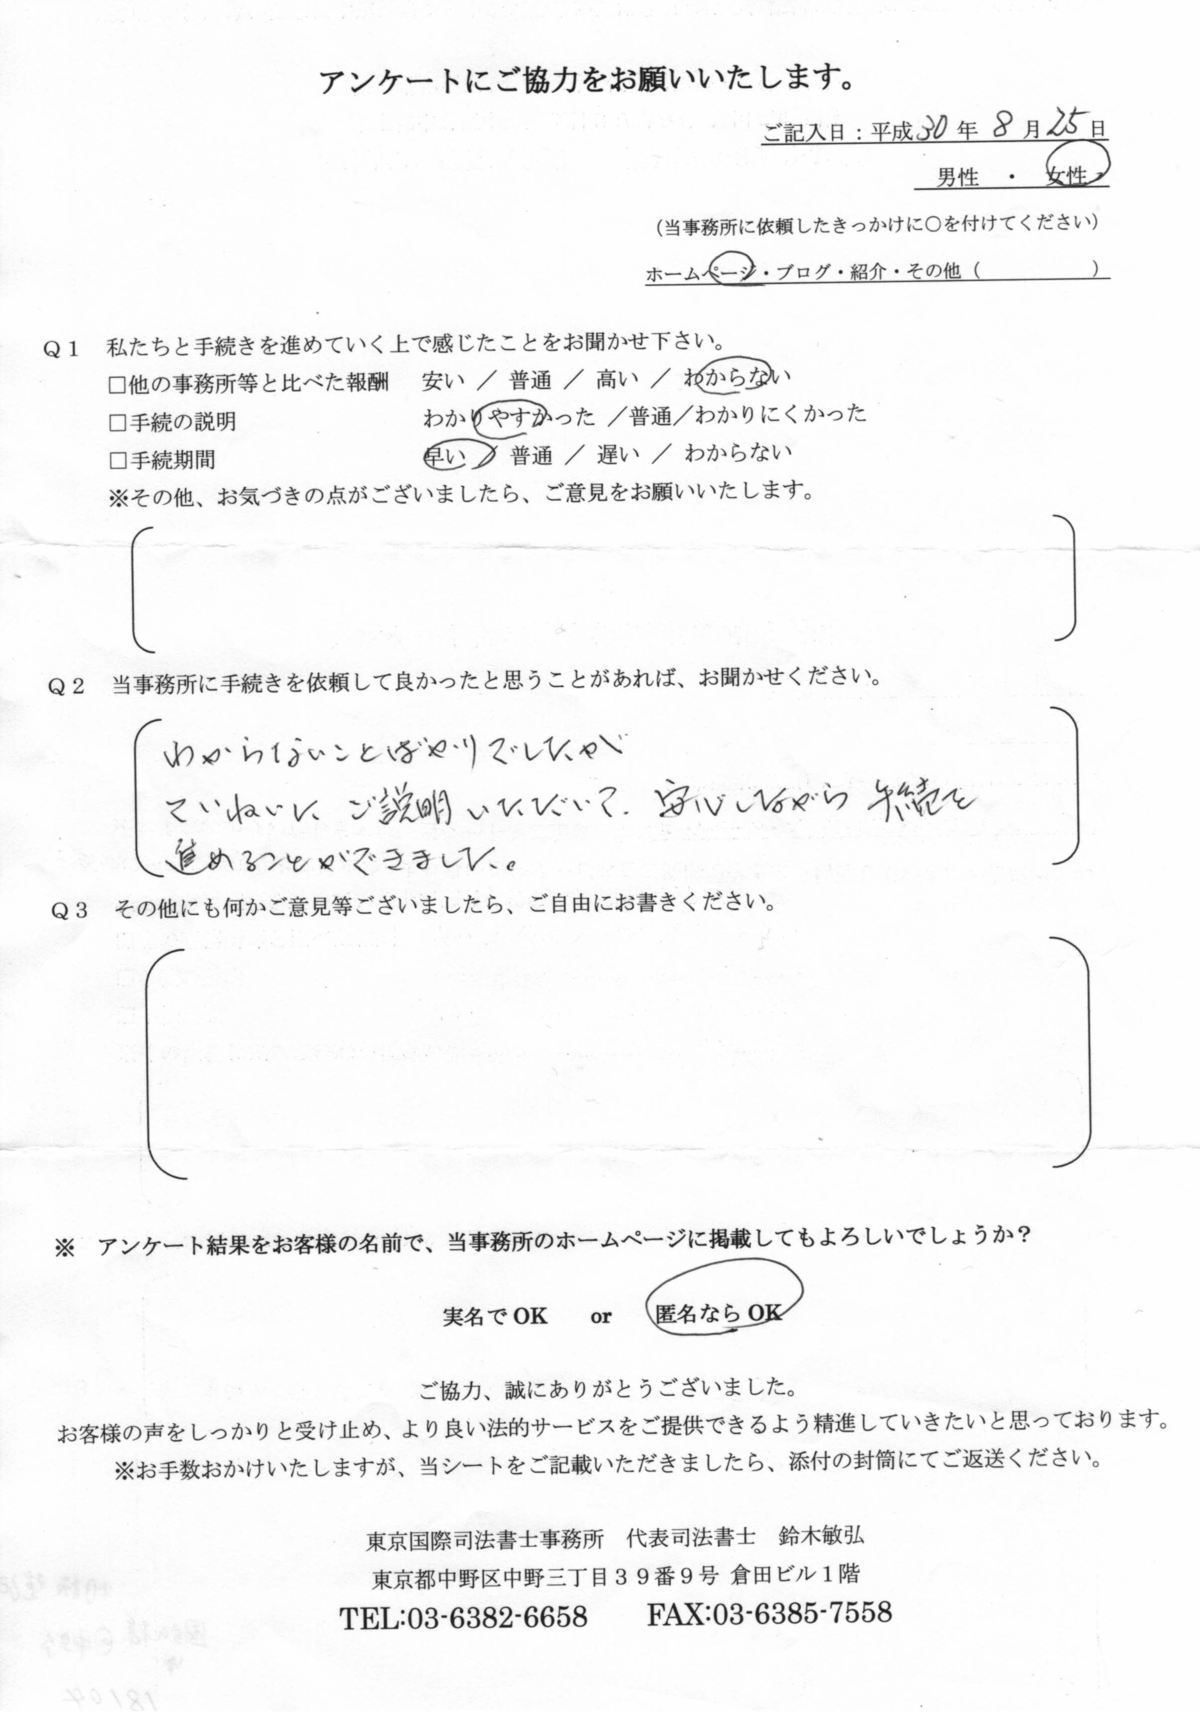 アンケートにご協力をお願いいたします。
ご記入日：平成30年 8月25日
男性 ・ 女性
（当事務所に依頼したきっかけに○を付けてください）
ホームページ・ブログ・紹介・その他（　　　　　　）
Q1 私たちと手続きを進めていく上で感じたことをお聞かせ下さい。
□他の事務所等と比べた報酬 安い ／ 普通 ／ 高い ／ わからない
□手続の説明 わかりやすかった ／普通／わかりにくかった
□手続期間 早い ／ 普通 ／ 遅い ／ わからない
※その他、お気づきの点がございましたら、ご意見をお願いいたします。
Q2 当事務所に手続きを依頼して良かったと思うことがあれば、お聞かせください。
わからないことばかりでしたが
ていねいに ご説明いただいて、安心しながら 手続を
進めることができました。
Q3 その他にも何かご意見等ございましたら、ご自由にお書きください。
※ アンケート結果をお客様の名前で、当事務所のホームページに掲載してもよろしいでしょうか？
実名でOK or 匿名ならOK
ご協力、誠にありがとうございました。
お客様の声をしっかりと受け止め、より良い法的サービスをご提供できるよう精進していきたいと思っております。
※お手数おかけいたしますが、当シートをご記載いただきましたら、添付の封筒にてご返送ください。
東京国際司法書士事務所 代表司法書士 鈴木敏弘
東京都中野区中野三丁目３９番９号 倉田ビル１階
TEL:03-6382-6658 FAX:03-6385-7558